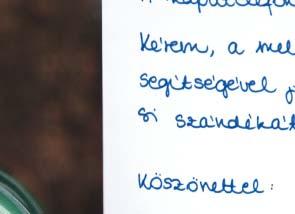 Kérem, a mel
segítségével j
si szándékát
Köszönettel: